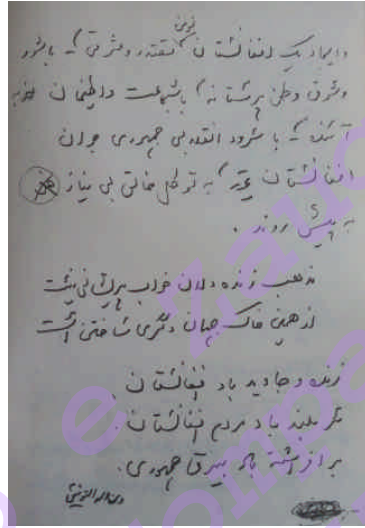 نوین
و ایجاد یک افغانستان مقتدر و مترقی، با شور
و شوق وطن پرستانه، با شجاعت و اطمینان به
آینده، با سرود انقلابی جمهوری جوان
افغانستان عزیز، به توکل خالق بی نیاز
به پیش روند.
مذهب زنده دلان خواب پریشانی نیست
از همین خاک جهان دگری ساختن است
زنده و جاوید باد افغانستان.
سر بلند باد مردم افغانستان.
بر افراشته باد بیرق جمهوری.
ومن الله التوفیق